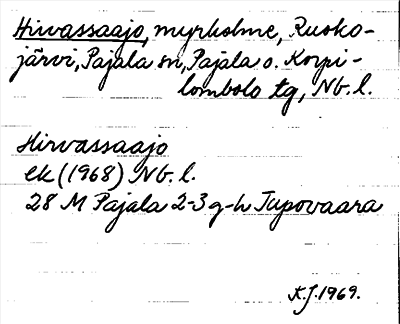 Hirvassaajo, myrholme, Ruoko-
järvi, Pajala sn, Pajala o. Korpi-
lombolo tg, Nb. l.
Hirvassaajo
ek (1968) Nb. l.
28 M Pajala 2-3 g-h Tupovaara
K.J. 1969.